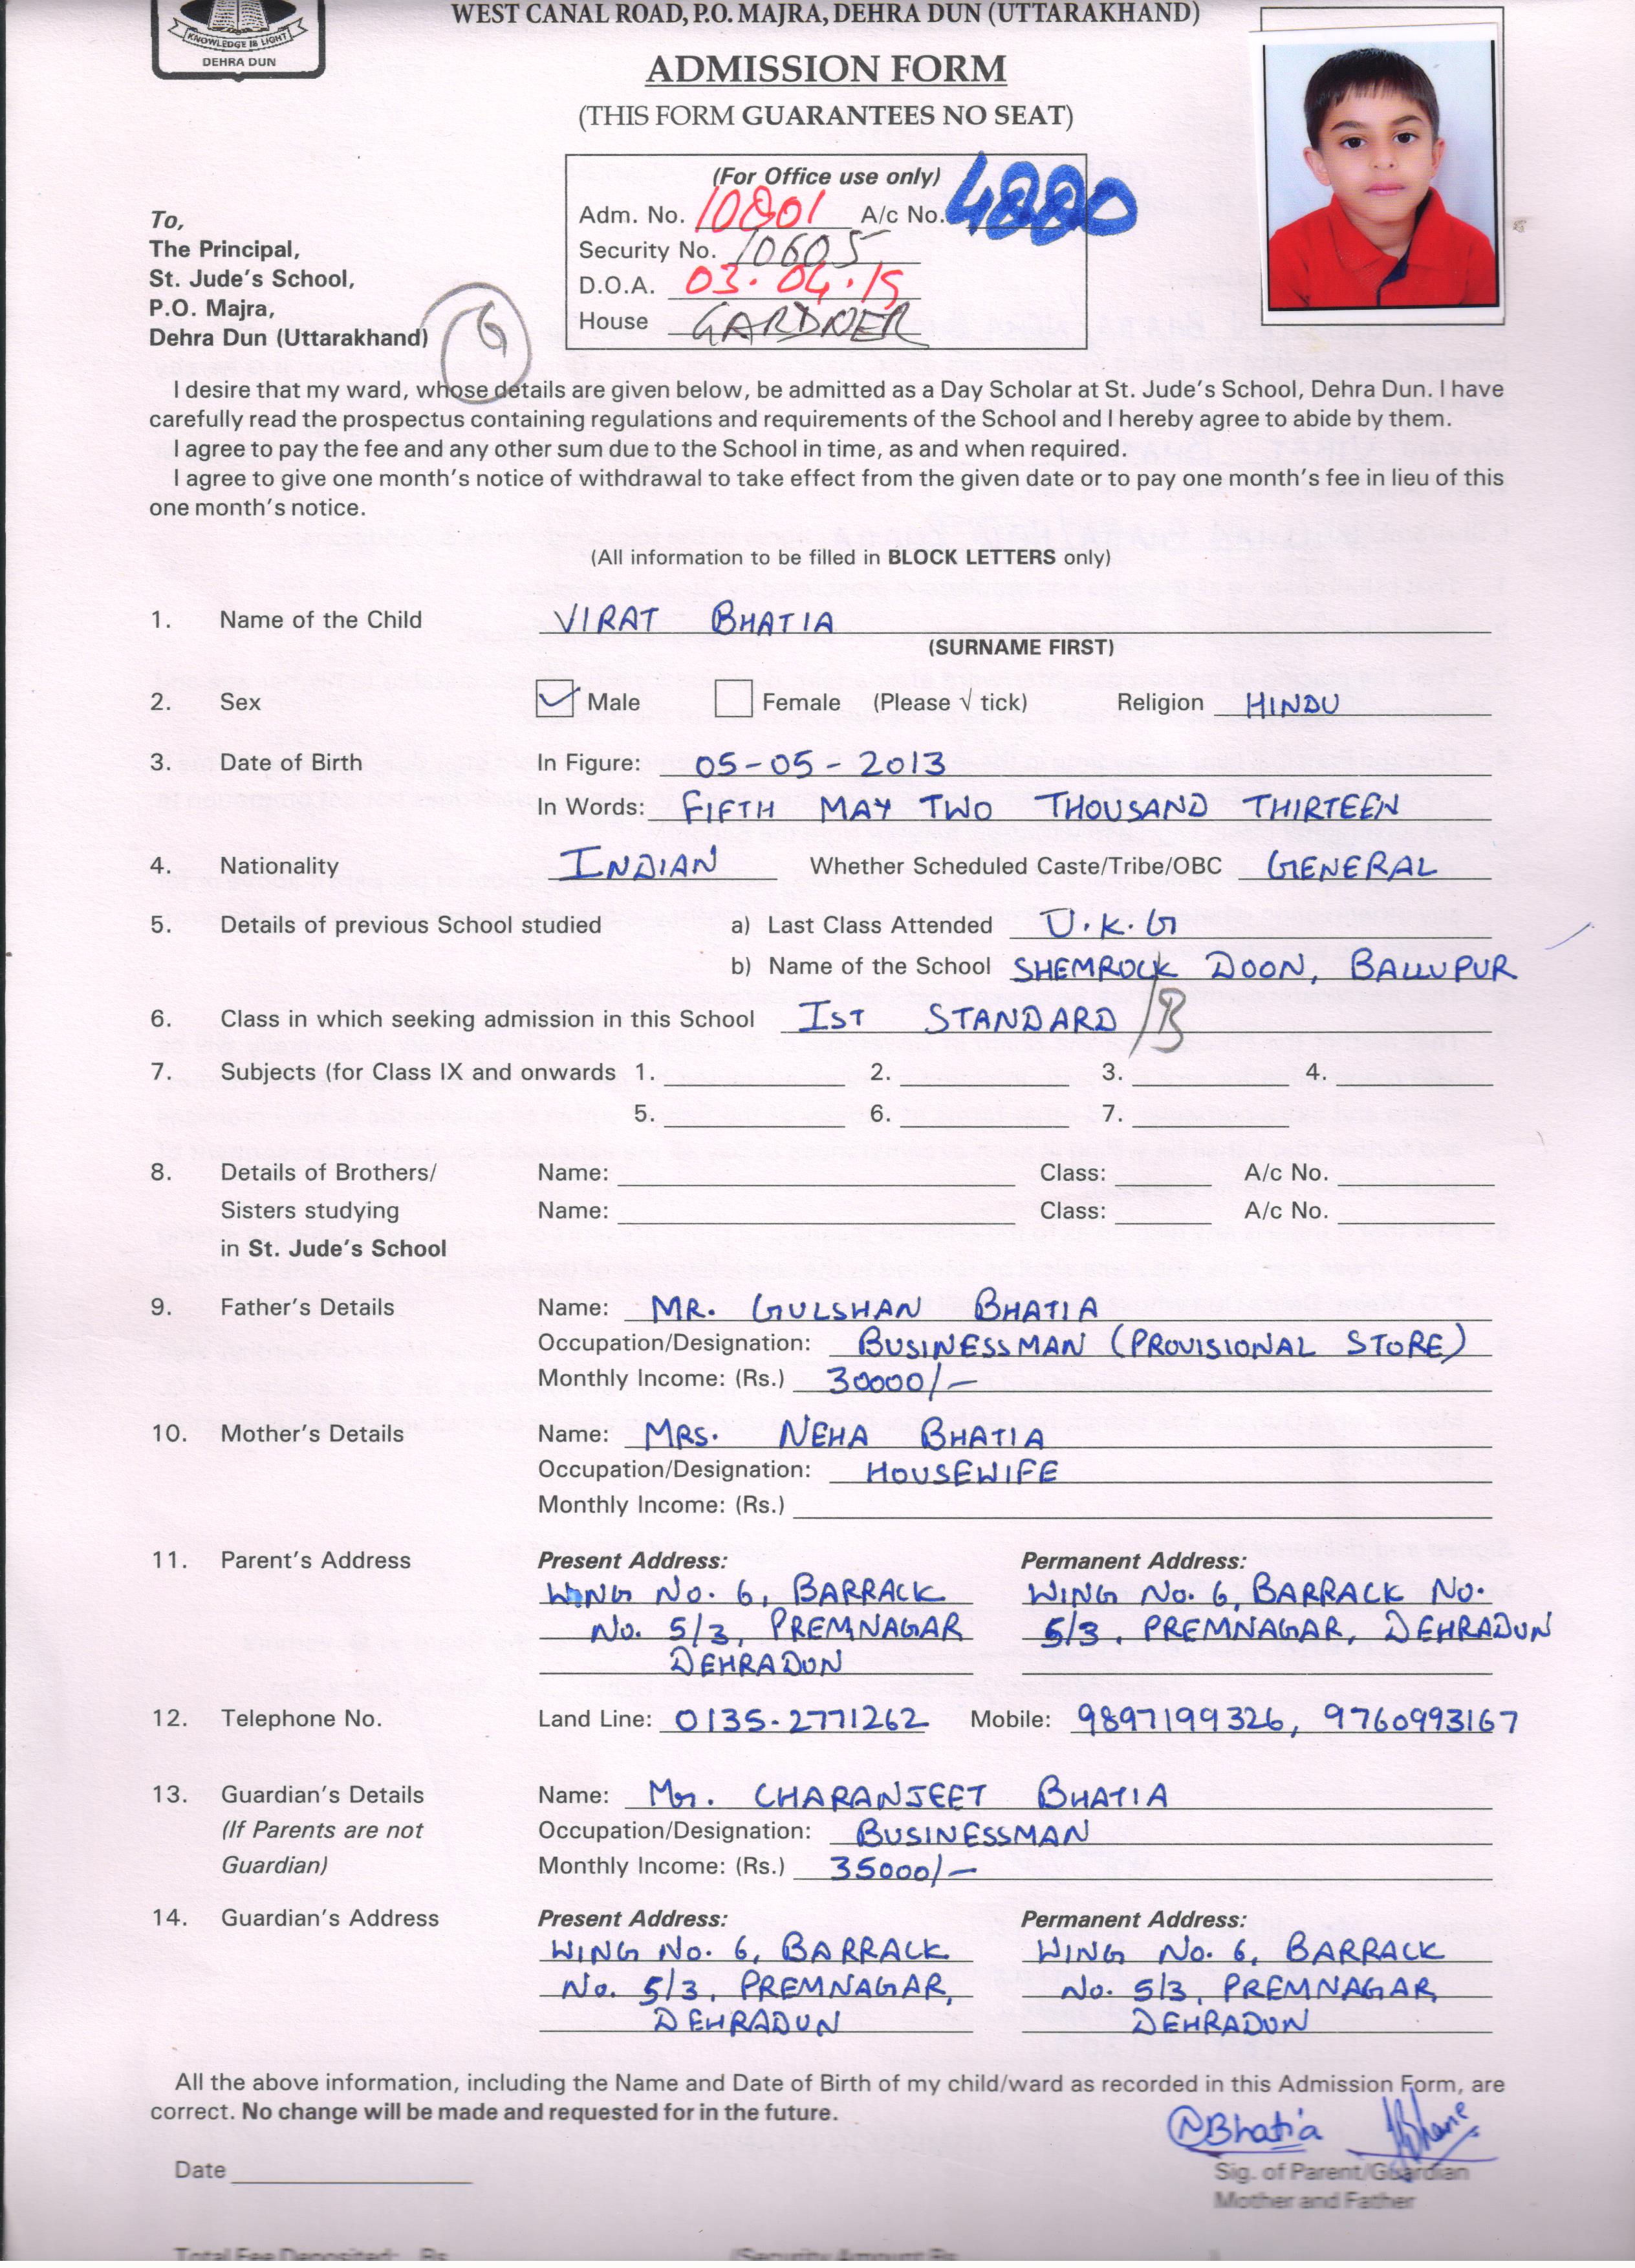 KNOWLEDGE IS LIGHT
DEHRA DUN
WEST CANAL ROAD, P.O. MAJRA, DEHRA DUN (UTTARAKHAND)
ADMISSION FORM
(THIS FORM GUARANTEES NO SEAT)
(For Office use only)
Adm. No. 10801 A/c No. 4880
Security No. 10605
D.O.A. 03.04.19
House GARDNER
To,
The Principal,
St. Jude's School,
P.O. Majra,
Dehra Dun (Uttarakhand)
I desire that my ward, whose details are given below, be admitted as a Day Scholar at St. Jude's School, Dehra Dun. I have
carefully read the prospectus containing regulations and requirements of the School and I hereby agree to abide by them.
I agree to pay the fee and any other sum due to the School in time, as and when required.
I agree to give one month's notice of withdrawal to take effect from the given date or to pay one month's fee in lieu of this
one month's notice.
(All information to be filled in BLOCK LETTERS only)
1. Name of the Child VIRAT BHATIA
(SURNAME FIRST)
2. Sex Male Female (Please √ tick) Religion HINDU
3. Date of Birth In Figure: 05-05-2013
In Words: FIFTH MAY TWO THOUSAND THIRTEEN
4. Nationality INDIAN Whether Scheduled Caste/Tribe/OBC GENERAL
5. Details of previous School studied a) Last Class Attended U.K.G
b) Name of the School SHEMROCK DOON, BALLUPUR
6. Class in which seeking admission in this School IST STANDARD /B
7. Subjects (for Class IX and onwards 1. 2. 3. 4.
5. 6. 7.
8. Details of Brothers/ Name: Class: A/c No.
Sisters studying Name: Class: A/c No.
in St. Jude's School
9. Father's Details Name: MR. GULSHAN BHATIA
Occupation/Designation: BUSINESSMAN (PROVISIONAL STORE)
Monthly Income: (Rs.) 30000/-
10. Mother's Details Name: MRS. NEHA BHATIA
Occupation/Designation: HOUSEWIFE
Monthly Income: (Rs.)
11. Parent's Address Present Address: Permanent Address:
WING NO. 6, BARRACK WING NO. 6, BARRACK NO.
NO. 5/3, PREMNAGAR 5/3, PREMNAGAR, DEHRADUN
DEHRADUN
12. Telephone No. Land Line: 0135-2771262 Mobile: 9897199326, 9760993167
13. Guardian's Details Name: Mr. CHARANJEET BHATIA
(If Parents are not Occupation/Designation: BUSINESSMAN
Guardian) Monthly Income: (Rs.) 35000/-
14. Guardian's Address Present Address: Permanent Address:
WING NO. 6, BARRACK WING NO. 6, BARRACK
NO. 5/3, PREMNAGAR, NO. 5/3, PREMNAGAR,
DEHRADUN DEHRADUN
All the above information, including the Name and Date of Birth of my child/ward as recorded in this Admission Form, are
correct. No change will be made and requested for in the future.
NBhatia
Date Sig. of Parent/Guardian
Mother and Father
Total Fee Deposited: Rs. (Security Amount Rs.